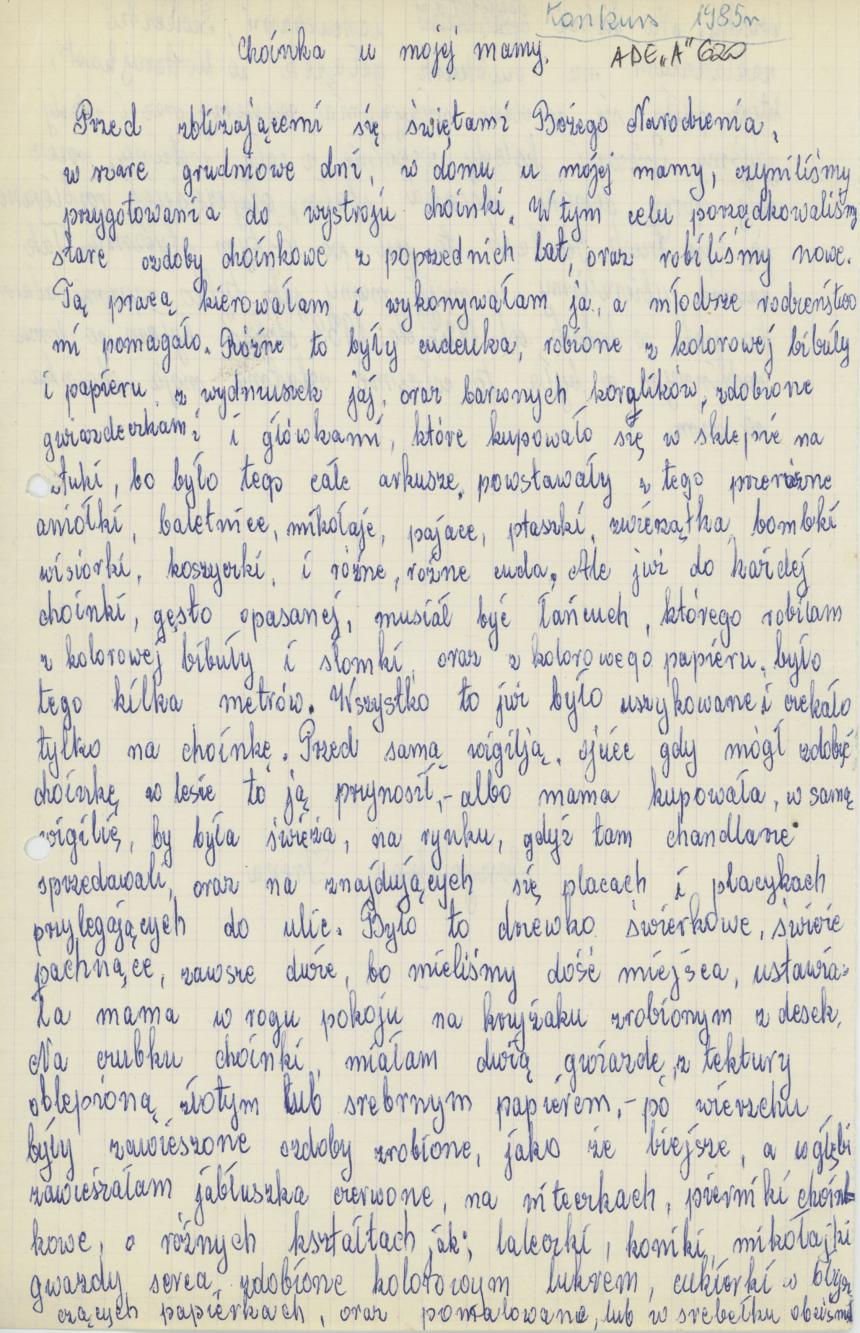 Konkurs 1985r
Choinka u mojej mamy. ADE „A" 620
Przed zbliżającemi się świętami Bożego Narodzenia,
w szare grudniowe dni, w domu u mojej mamy, czyniliśmy
przygotowania do wystroju choinki. W tym celu porządkowaliśmy
stare ozdoby choinkowe z poprzednich lat, oraz robiliśmy nowe.
Tą pracą kierowałam i wykonywałam ja, a młodsze rodzeństwo
mi pomagało. Różne to były cudeńka, robione z kolorowej bibuły
i papieru, z wydmuszek jaj, oraz barwnych koralików, zdobione
gwiazdeczkami i główkami, które kupowało się w sklepie na
sztuki, bo było tego całe arkusze. powstawały z tego przeróżne
aniołki, baletnice, mikołaje, pajace, ptaszki, zwierzątka, bombki
wisiorki, koszyczki, i różne, różne cuda. Ale już do każdej
choinki, gęsto opasanej, musiał być łańcuch, którego robiłam
z kolorowej bibuły i słomki, oraz z kolorowego papieru. było
tego kilka metrów. Wszystko to już było uszykowane i czekało
tylko na choinkę. Przed samą wigilją, ojciec gdy mógł zdobyć
choinkę w lesie to ją przynosił, - albo mama kupowała, w samą
wigilię, by była świeża, na rynku, gdyż tam chandlarze
sprzedawali, oraz na znajdujących się placach i placykach
przylegających do ulic. Było to drzewko świerkowe, świeże
pachnące, zawsze duże, bo mieliśmy dość miejsca, ustawia-
ła mama w rogu pokoju na krzyżaku zrobionym z desek.
Na czubku choinki, miałam dużą gwiazdę, z tektury
oblepioną złotym lub srebrnym papierem, - po wierzchu
były zawieszone ozdoby zrobione, jako że lżejsze, a w głębi
zawieszałam jabłuszka czerwone, na niteczkach, pierniki choin-
kowe, o różnych kształtach jak; laleczki, koniki, mikołajki
gwiazdy serca, zdobione kolorowym lukrem, cukierki w błysz-
czących papierkach, oraz pomalowane, lub w srebełku